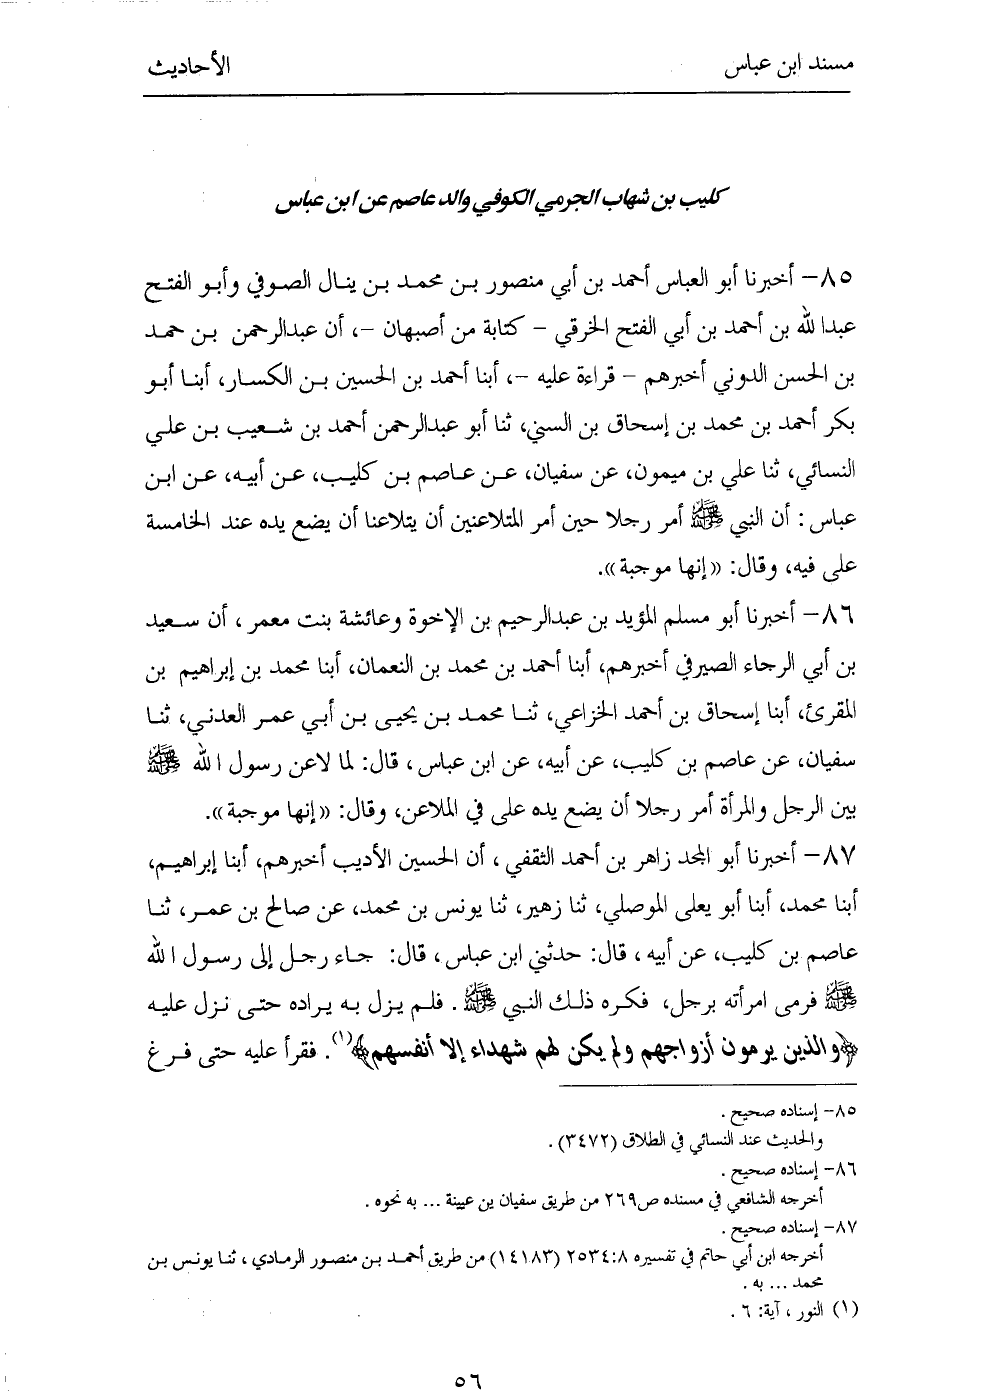 مسند ابن عباس
الأحاديث
كليب بن شهاب الجرمي الكوفي والد عاصم عن ابن عباس
٨٥- أخبرنا أبو العباس أحمد بن أبي منصور بن محمد بن ينال الصوفي وأبو الفتح
عبدا لله بن أحمد بن أبي الفتح الخرقي - كتابة من أصبهان -، أن عبدالرحمن بن حمد
بن الحسن الدوني أخبرهم - قراءة عليه -، أبنا أحمد بن الحسين بن الكسار، أبنا أبو
بكر أحمد بن محمد بن إسحاق بن السني، ثنا أبو عبدالرحمن أحمد بن شعيب بن علي
النسائي، ثنا علي بن ميمون، عن سفيان، عن عاصم بن كليب، عن أبيه، عن ابن
عباس : أن النبي ﷺ أمر رجلا حين أمر المتلاعنين أن يتلاعنا أن يضع يده عند الخامسة
على فيه، وقال: «إنها موجبة».
٨٦- أخبرنا أبو مسلم المؤيد بن عبدالرحيم بن الإخوة وعائشة بنت معمر ، أن سعيد
بن أبي الرجاء الصيرفي أخبرهم، أبنا أحمد بن محمد بن النعمان، أبنا محمد بن إبراهيم بن
المقرئ، أبنا إسحاق بن أحمد الخزاعي، ثنا محمد بن يحيى بن أبي عمر العدني، ثنا
سفيان، عن عاصم بن كليب، عن أبيه، عن ابن عباس ، قال: لما لاعن رسول ا لله ﷺ
بين الرجل والمرأة أمر رجلا أن يضع يده على في الملاعن، وقال: «إنها موجبة».
٨٧- أخبرنا أبو المجد زاهر بن أحمد الثقفي ، أن الحسين الأديب أخبرهم، أبنا إبراهيم،
أبنا محمد، أبنا أبو يعلى الموصلي، ثنا زهير، ثنا يونس بن محمد، عن صالح بن عمر، ثنا
عاصم بن كليب، عن أبيه ، قال: حدثني ابن عباس ، قال: جاء رجل إلى رسول ا لله
ﷺ فرمى امرأته برجل، فكره ذلك النبي ﷺ . فلم يزل به يراده حتى نزل عليه
﴿والذين يرمون أزواجهم ولم يكن لهم شهداء إلا أنفسهم﴾(١). فقرأ عليه حتى فرغ
٨٥- إسناده صحيح .
والحديث عند النسائي في الطلاق (٣٤٧٢) .
٨٦- إسناده صحيح .
أخرجه الشافعي في مسنده ص٢٦٩ من طريق سفيان ين عيينة ... به نحوه .
٨٧- إسناده صحيح .
أخرجه ابن أبي حاتم في تفسيره ٢٥٣٤:٨ (١٤١٨٣) من طريق أحمد بن منصور الرمادي ، ثنا يونس بن
محمد ... به .
(١) النور ، آية: ٦ .
٥٦